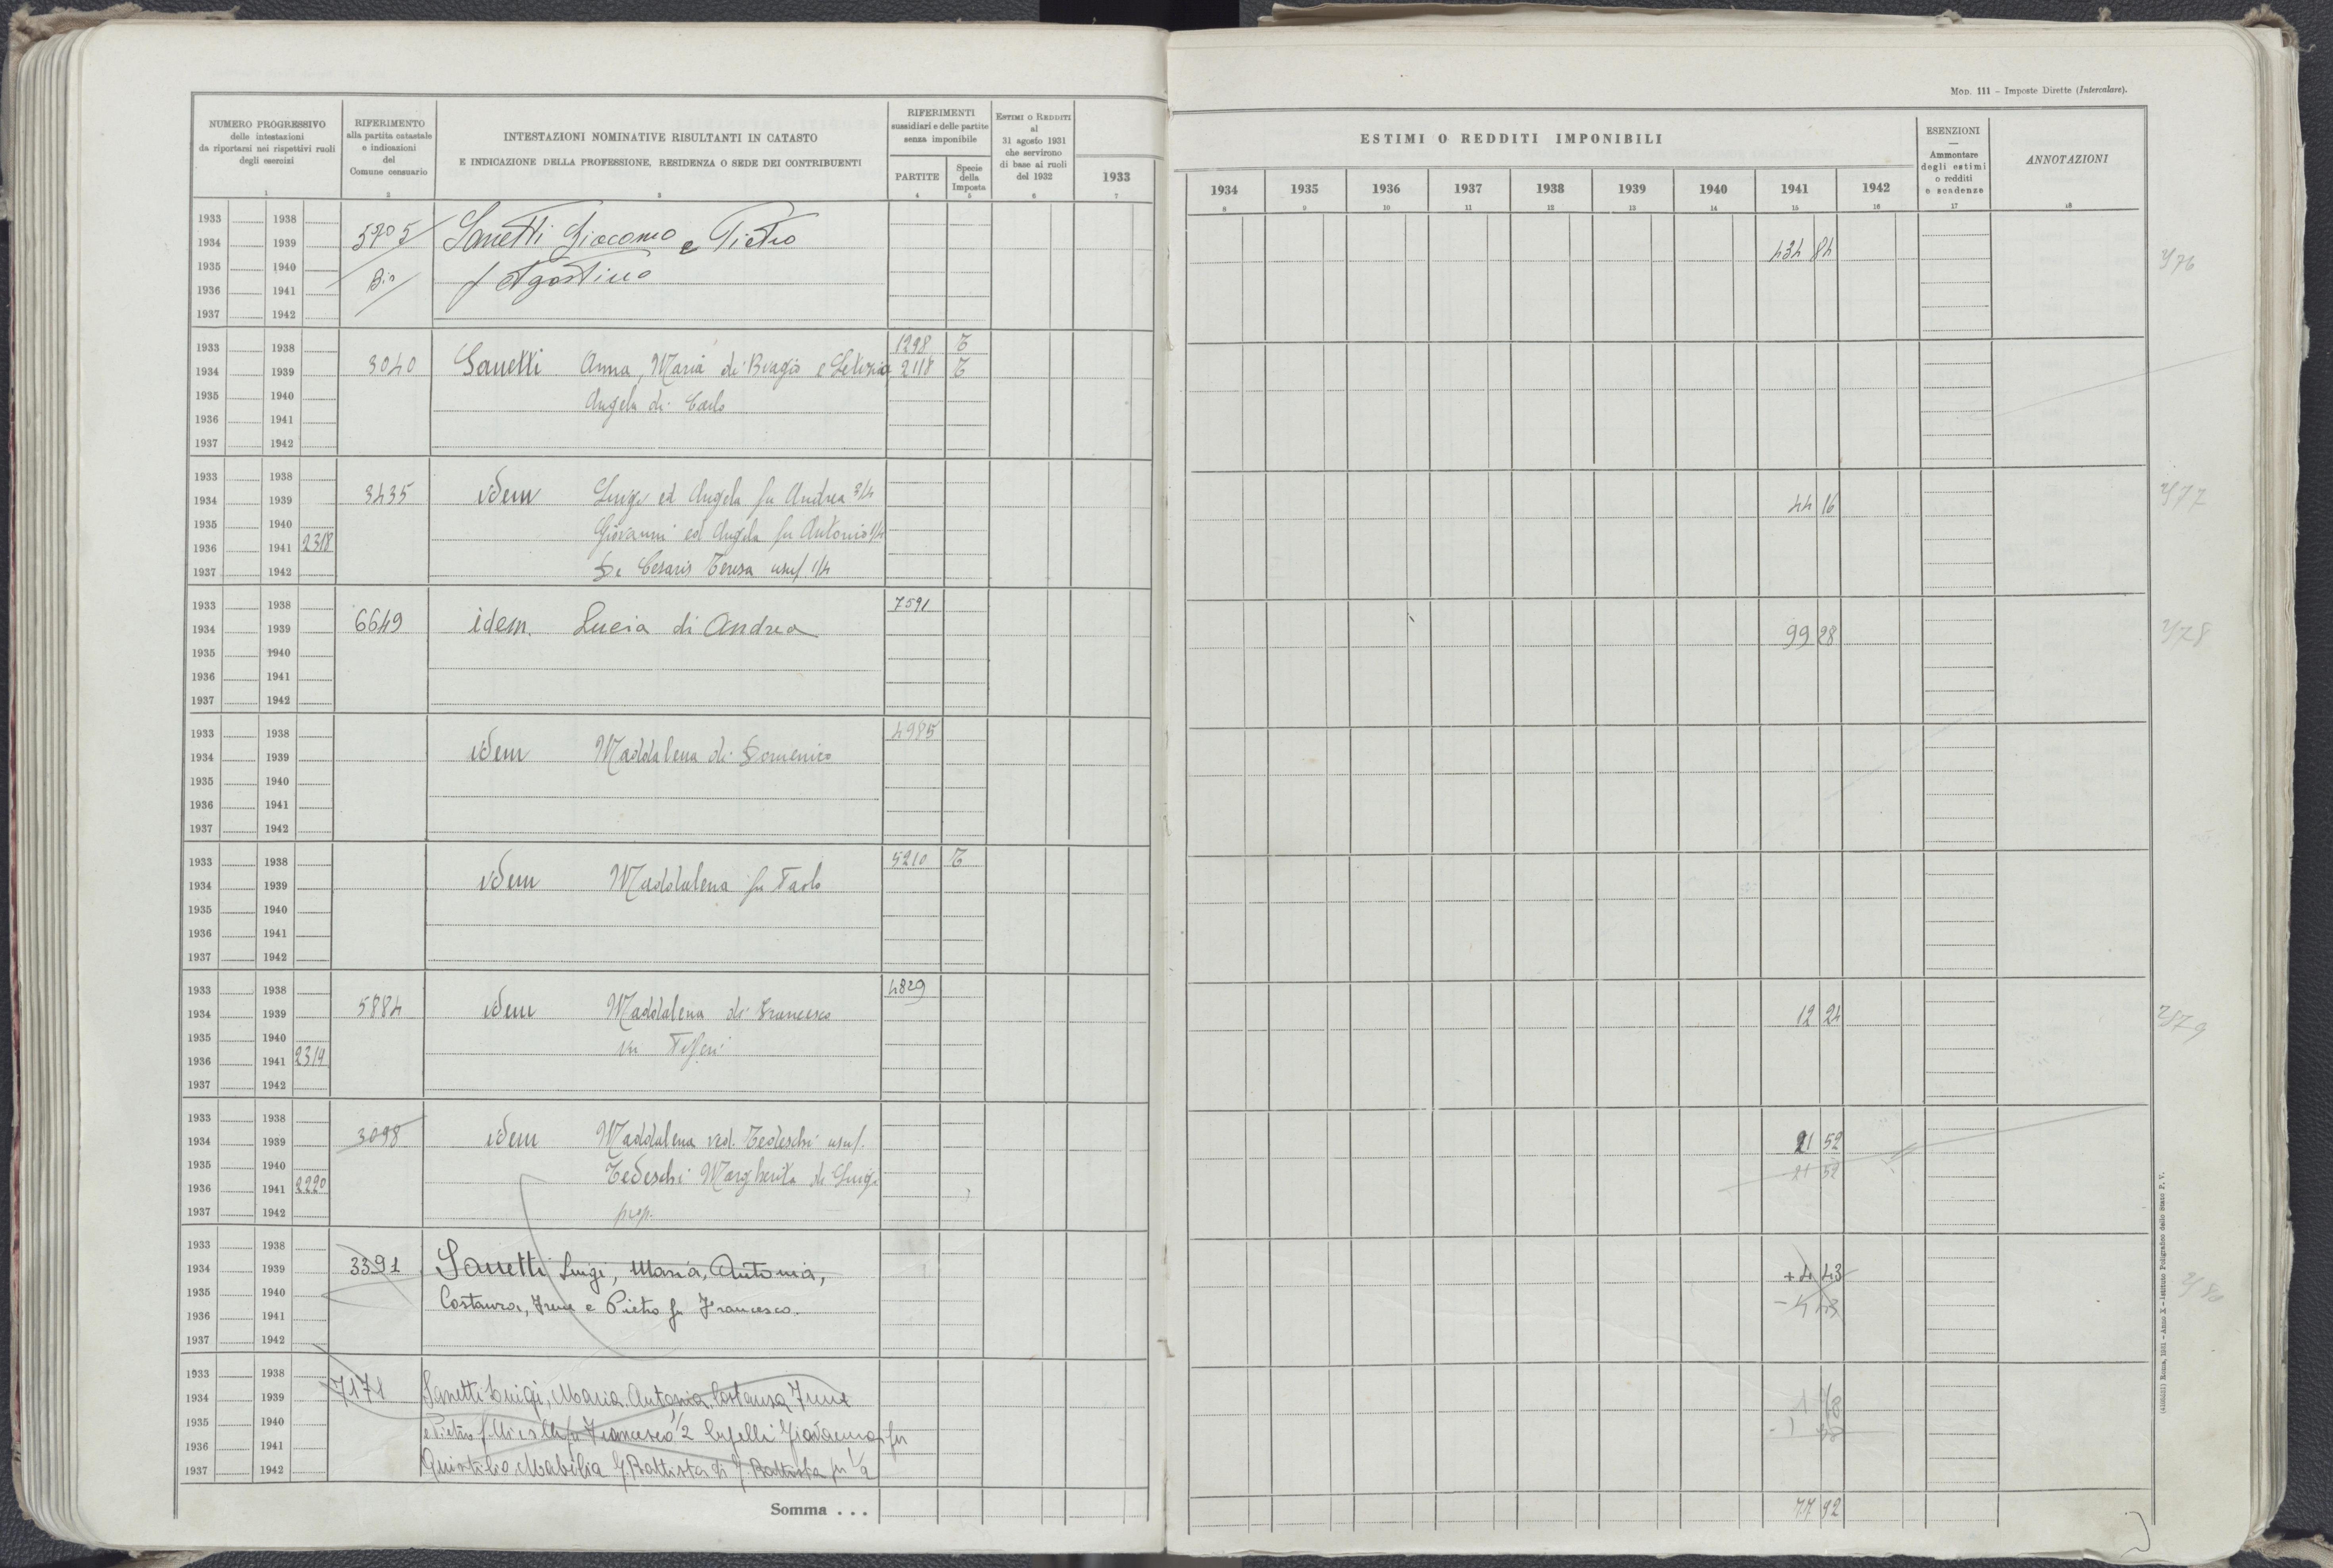 Mod. 111 - Imposte Dirette (Intercalare).
NUMERO PROGRESSIVO
delle intestazioni
da riportarsi nei rispettivi ruoli
degli esercizi
1
RIFERIMENTO
alla partita catastale
e indicazioni
del
Comune censuario
2
INTESTAZIONI NOMINATIVE RISULTANTI IN CATASTO
E INDICAZIONE DELLA PROFESSIONE, RESIDENZA O SEDE DEI CONTRIBUENTI
3
RIFERIMENTI
sussidiari e delle partite
senza imponibile
PARTITE
4
Specie
della
Imposta
5
ESTIMI O REDDITI
al
31 agosto 1931
che servirono
di base ai ruoli
del 1932
6
1933
7
ESTIMI O REDDITI IMPONIBILI
1934 1935 1936 1937 1938 1939 1940 1941 1942
8 9 10 11 12 13 14 15 16
ESENZIONI
—
Ammontare
degli estimi
o redditi
e scadenze
17
ANNOTAZIONI
18
1933 1938
1934 1939 5905 Sanetti Giacomo e Pietro 434 84
1935 1940 f Agostino
1936 1941
1937 1942
1933 1938 1298 T
1934 1939 3040 Sanetti Anna, Maria di Biagio e Letizia 2118 T
1935 1940 Angela di Carlo
1936 1941
1937 1942
1933 1938
1934 1939 3435 idem Luigi ed Angela fu Andrea 3/4 44 16
1935 1940 Giovanni ed Angela fu Antonio 1/4
1936 1941 2318
1937 1942 De Cesaris Teresa usuf 1/4
1933 1938 7591
1934 1939 6649 idem. Lucia di Andrea 99 28
1935 1940
1936 1941
1937 1942
1933 1938 4985
1934 1939 idem Maddalena di Domenico
1935 1940
1936 1941
1937 1942
1933 1938 5210 T
1934 1939 idem Maddalena fu Paolo
1935 1940
1936 1941
1937 1942
1933 1938 4829
1934 1939 5884 idem Maddalena di Francesco 12 24
1935 1940 in
1936 1941 2319
1937 1942
1933 1938
1934 1939 3098 idem Maddalena ved. Tedeschi usuf. 21 52
1935 1940 Tedeschi Margherita di Luigi 21 52
1936 1941 2220
1937 1942 prop.
1933 1938
1934 1939 3391 Sanetti Luigi, Maria, Antonia, + 4 43
1935 1940 Costanza, Irene e Pietro fu Francesco. - 4 43
1936 1941
1937 1942
1933 1938
1934 1939 7171 Sanetti Luigi, Maria, Antonia, Costanza, Irene
1935 1940 e Pietro fu Francesco 1/2
1936 1941
1937 1942 Quintilio Mabilia G. Battista di G. Battista 1/2
Somma . . . 77 92
(4105351) Roma, 1931 - Anno X - Istituto Poligrafico dello Stato P. V.